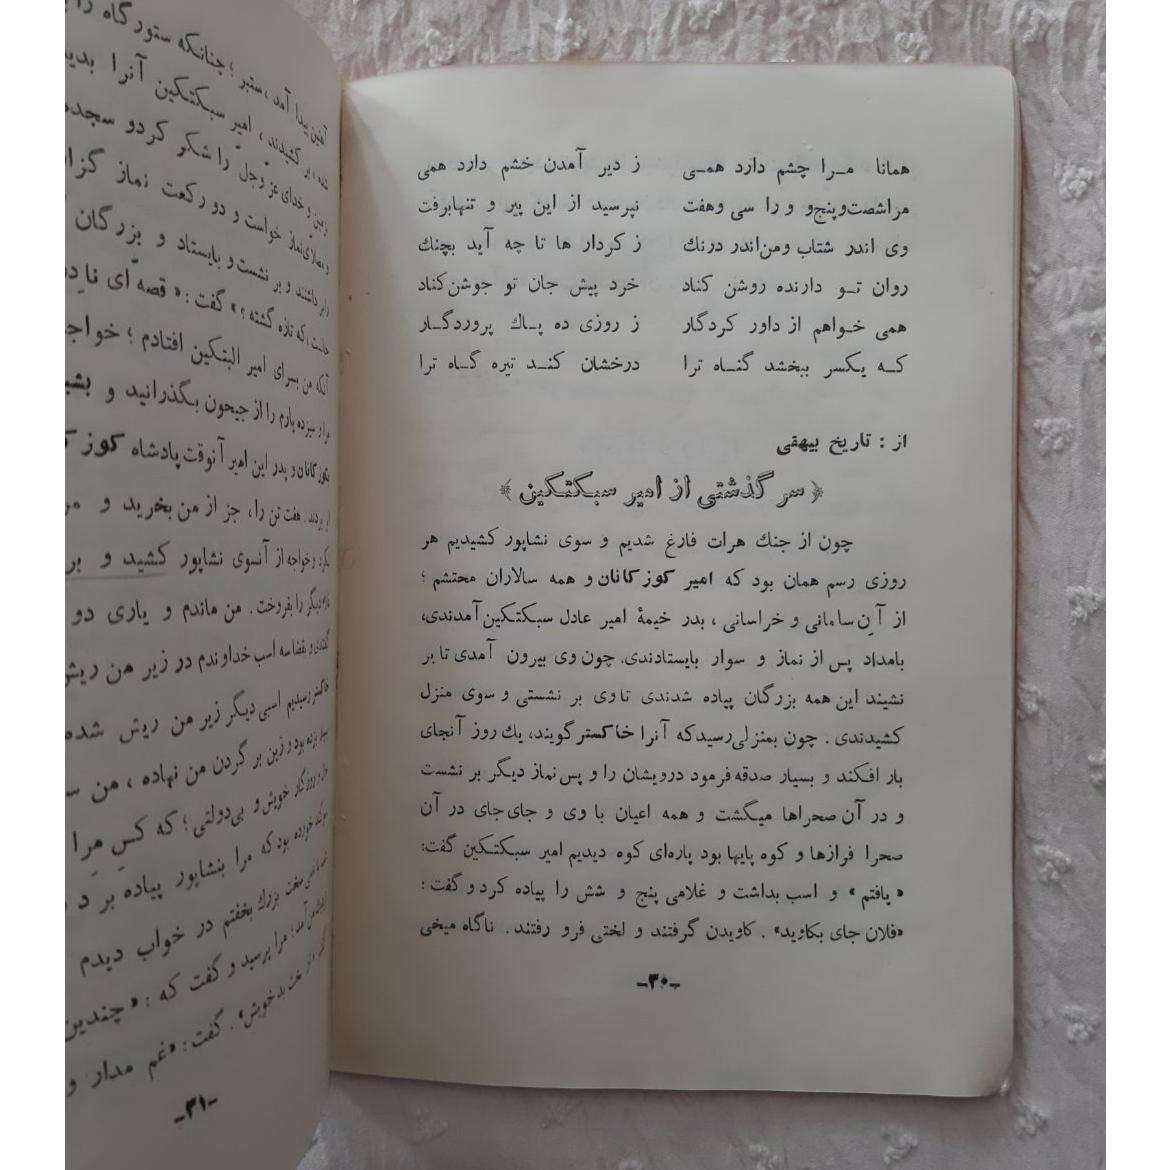 همانا مرا چشم دارد همی ز دیر آمدن خشم دارد همی
مراشصت‌وپنج‌و و را سی وهفت نپرسید از این پیر و تنهابرفت
وی اندر شتاب ومن‌اندر درنك ز کردار ها تا چه آید بچنك
روان تو دارنده روشن کناد خرد پیش جان تو جوشن‌کناد
همی خواهم از داور کردگار ز روزی ده پاك پروردگار
که یکسر ببخشد گناه ترا درخشان کند تیره گاه ترا
از : تاریخ بیهقی
﴿ سرگذشتی از امیر سبکتکین ﴾
چون از جنك هرات فارغ شدیم و سوی نشاپور کشیدیم هر
روزی رسم همان بود که امیر کوز کانان و همه سالاران محتشم ؛
از آنِ سامانی و خراسانی ، بدر خیمهٔ امیر عادل سبکتکین آمدندی،
بامداد پس از نماز و سوار بایستادندی. چون وی بیرون آمدی تا بر
نشیند این همه بزرگان پیاده شدندی تاوی بر نشستی و سوی منزل
کشیدندی . چون بمنزلی رسیدکه آنرا خاکستر گویند، یك روز آنجای
بار افکند و بسیار صدقه فرمود درویشان را و پس نماز دیگر بر نشست
و در آن صحراها میگشت و همه اعیان با وی و جای‌جای در آن
صحرا فرازها و کوه پایها بود پاره‌ای کوه دیدیم امیر سبکتکین گفت:
« یافتم » و اسب بداشت و غلامی پنج و شش را پیاده کرد و گفت :
«فلان جای بکاوید» . کاویدن گرفتند و لختی فرو رفتند . ناگاه میخی
-۳۰-
آهنین پیدا آمد ، ستبر ؛ چنانکه ستورگاه را
شده ، بر کشیدند ، امیر سبکتکین آنرا بدید
بزمین و خدای عزّ وجلّ را شکر کردو سجده
و مصلای نماز خواست و دو رکعت نماز گزار
داشتند و بر نشست و بایستاد و بزرگان
که تازه گشته ؟» گفت : « قصه‌ای نادر
آنکه من بسرای امیر البتکین افتادم ؛ خواجه
مرا و سیزده یارم را از جیحون بگذرانید و
کانان و پدر این امیر آنوقت پادشاه کوز
بردند . هفت تن را ، جز از من بخرید و
و خواجه از آنسوی نشاپور کشید و
دیگر را بفروخت . من ماندم و یاری دو
سه اسب خداوندم در زیر من ریش
خاکستر رسیدیم اسبی دیگر زیر من ریش شده
بود و زین بر گردن من نهاده ، من
روزگار خویش و بی‌دولتی ؛ که کس مرا
خورده بود که مرا بنشاپور پیاده برد
سخت بزرك بخفتم در خواب دیدم
آمد؛ مرا پرسید و گفت که : « چندین
بخت بد خویش» . گفت : «غم مدار و
-۳۱-